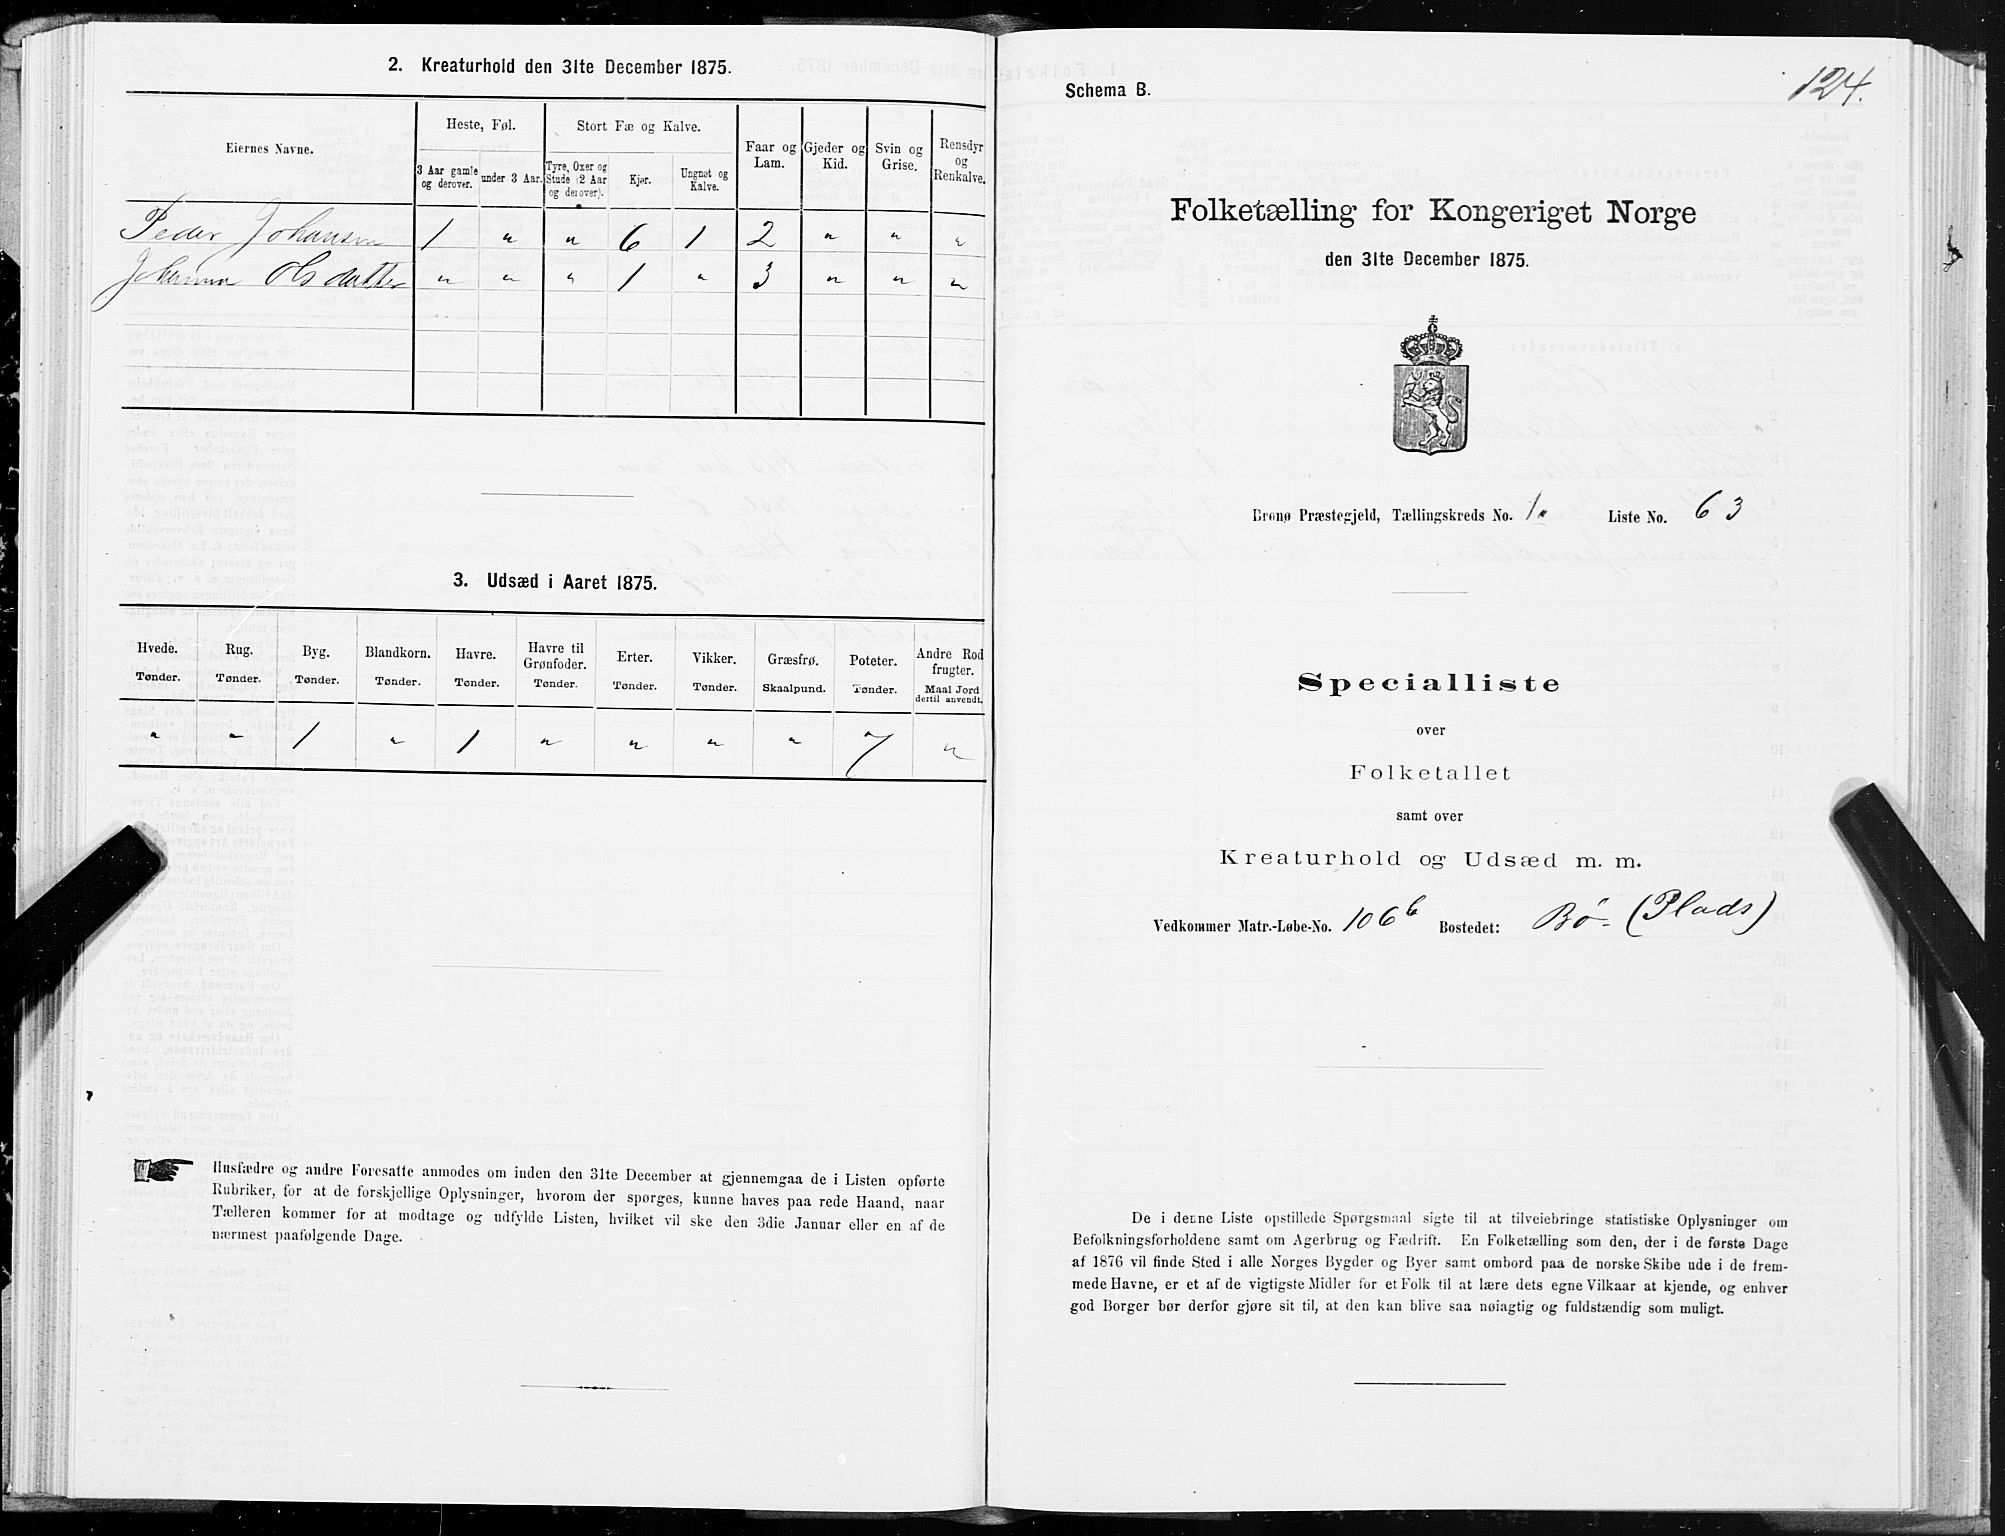 2. Kreaturhold den 31te December 1875.
Eiernes Navne.
Heste, Føl.
Stort Fæ og Kalve.
Faar og Lam.
Gjeder og Kid.
Svin og Grise.
Rensdyr og Renkalve.
3 Aar gamle og derover.
under 3 Aar.
Tyre, Oxer og Stude (2 Aar og derover).
Kjør.
Ungnøt og Kalve.
Peder Johansen 1 " " 6 1 2 " " "
Johanna Olsdatter " " " 1 " 3 " " "
3. Udsæd i Aaret 1875.
Hvede. Rug. Byg. Blandkorn. Havre. Havre til Grønfoder. Erter. Vikker. Græsfrø. Poteter. Andre Rodfrugter.
Tønder. Tønder. Tønder. Tønder. Tønder. Tønder. Tønder. Tønder. Skaalpund. Tønder. Maal Jord dertil anvendt.
" " 1 " 1 " " " " 7 "
Husfædre og andre Foresatte anmodes om inden den 31te December at gjennemgaa de i Listen opførte
Rubriker, for at de forskjellige Oplysninger, hvorom der spørges, kunne haves paa rede Haand, naar
Tælleren kommer for at modtage og udfylde Listen, hvilket vil ske den 3die Januar eller en af de
nærmest paafølgende Dage.
124.
Schema B.
Folketælling for Kongeriget Norge
den 31te December 1875.
Brønø Præstegjeld, Tællingskreds No. 1a Liste No. 63
Specialliste
over
Folketallet
samt over
Kreaturhold og Udsæd m. m.
Vedkommer Matr.-Løbe-No. 106b Bostedet: Bø (Plads)
De i denne Liste opstillede Spørgsmaal sigte til at tilveiebringe statistiske Oplysninger om
Befolkningsforholdene samt om Agerbrug og Fædrift. En Folketælling som den, der i de første Dage
af 1876 vil finde Sted i alle Norges Bygder og Byer samt ombord paa de norske Skibe ude i de frem-
mede Havne, er et af de vigtigste Midler for et Folk til at lære dets egne Vilkaar at kjende, og enhver
god Borger bør derfor gjøre sit til, at den kan blive saa nøiagtig og fuldstændig som muligt.